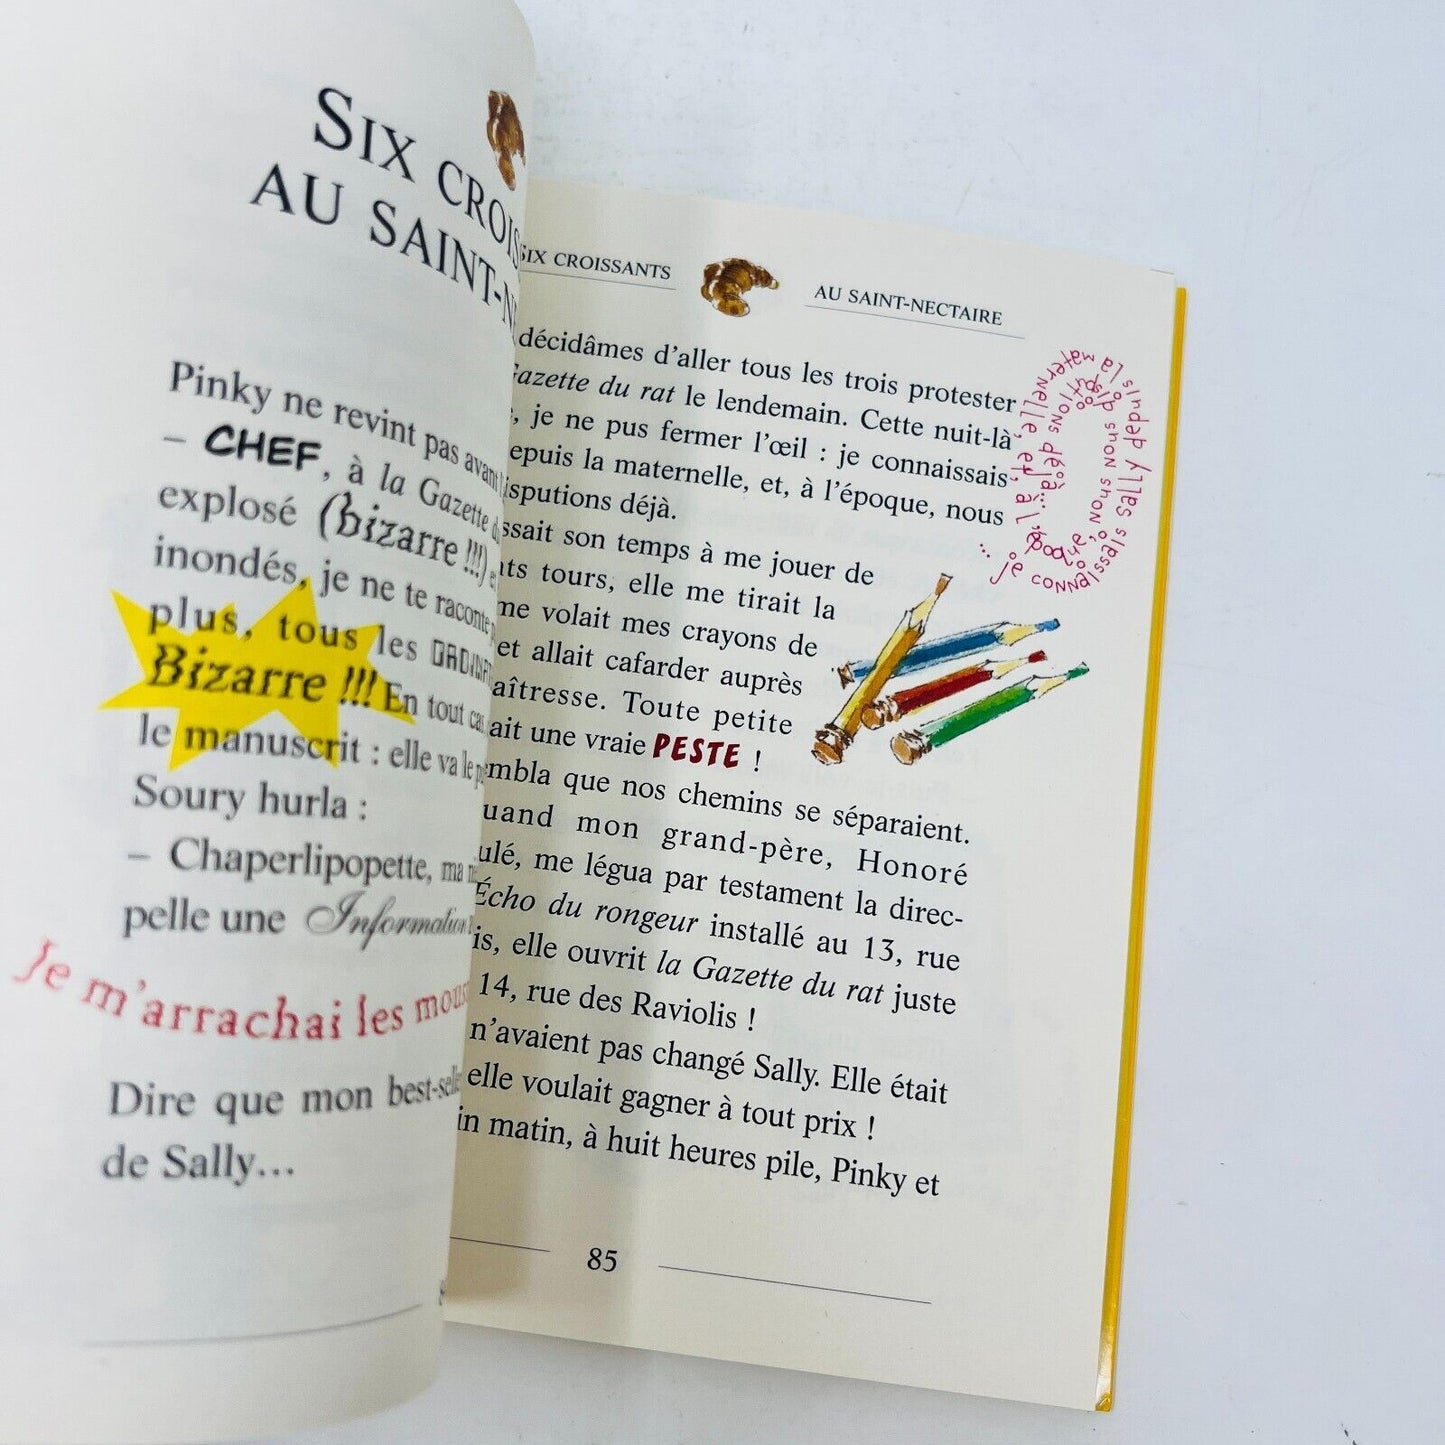 SIX CROIS
AU SAINT-N
Pinky ne revint pas avant
– CHEF, à la Gazette d
explosé (bizarre !!!) e
inondés, je ne te raconte p
plus, tous les ORDINA
Bizarre !!! En tout cas,
le manuscrit : elle va le p
Soury hurla :
– Chaperlipopette, ma
pelle une Information
Je m'arrachai les mous
Dire que mon best-selle
de Sally…
SIX CROISSANTS AU SAINT-NECTAIRE
décidâmes d'aller tous les trois protester
Gazette du rat le lendemain. Cette nuit-là
, je ne pus fermer l'œil : je connaissais
epuis la maternelle, et, à l'époque, nous
isputions déjà.
ssait son temps à me jouer de
ts tours, elle me tirait la
me volait mes crayons de
et allait cafarder auprès
aîtresse. Toute petite
ait une vraie PESTE !
mbla que nos chemins se séparaient.
uand mon grand-père, Honoré
ulé, me légua par testament la direc-
Écho du rongeur installé au 13, rue
is, elle ouvrit la Gazette du rat juste
14, rue des Raviolis !
n'avaient pas changé Sally. Elle était
elle voulait gagner à tout prix !
in matin, à huit heures pile, Pinky et
... je connaissais Sally depuis la maternelle, et, à l'époque, nous nous disputions déjà...
85